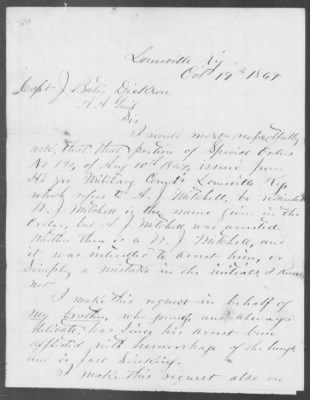 Louisville Ky
Oct 19th 1864
Capt J. Bates Dickson
A. A. Genl
Sir
I would most respectfully
ask, that that portion of Special Orders
No 194, of Aug 10th 1864, issued from
Hd Qrs Military Comdt Louisville Ky,
which refers to A. J. Mitchell, be rescinded
W. J. Mitchell is the name given in the
Order, but A. J. Mitchell was arrested.
Whether there is a W. J. Mitchell, and
it was intended to arrest him, or
simply a mistake in the initials, I know
not
I make this request in behalf of
my brother, who puny, and always
delicate, has since his arrest been
afflicted with hemorrhage of the lungs
and is fast sinking.
I make this request also on